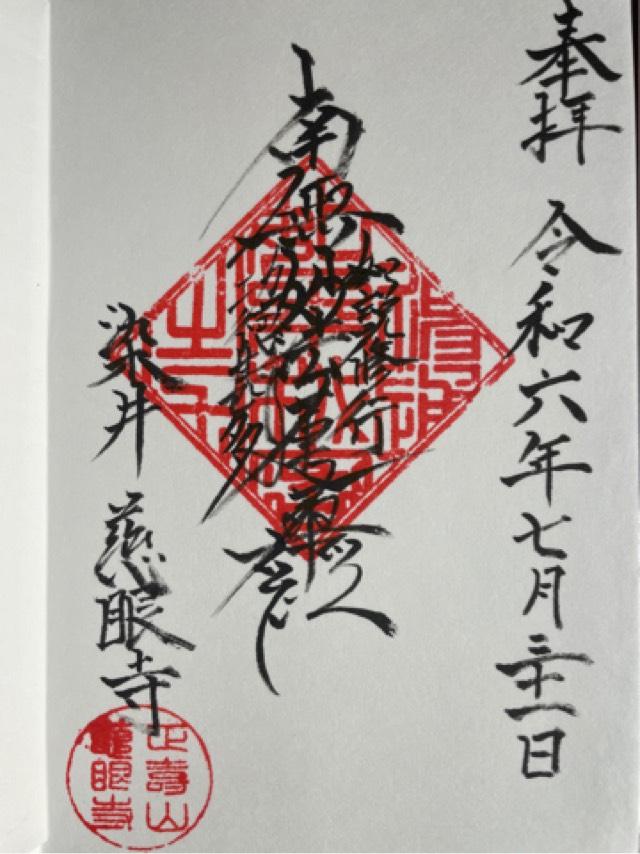 奉拝 令和六年七月三十一日
如説修行
南無妙法蓮華経
染井 慈眼寺
正壽山
慈眼寺